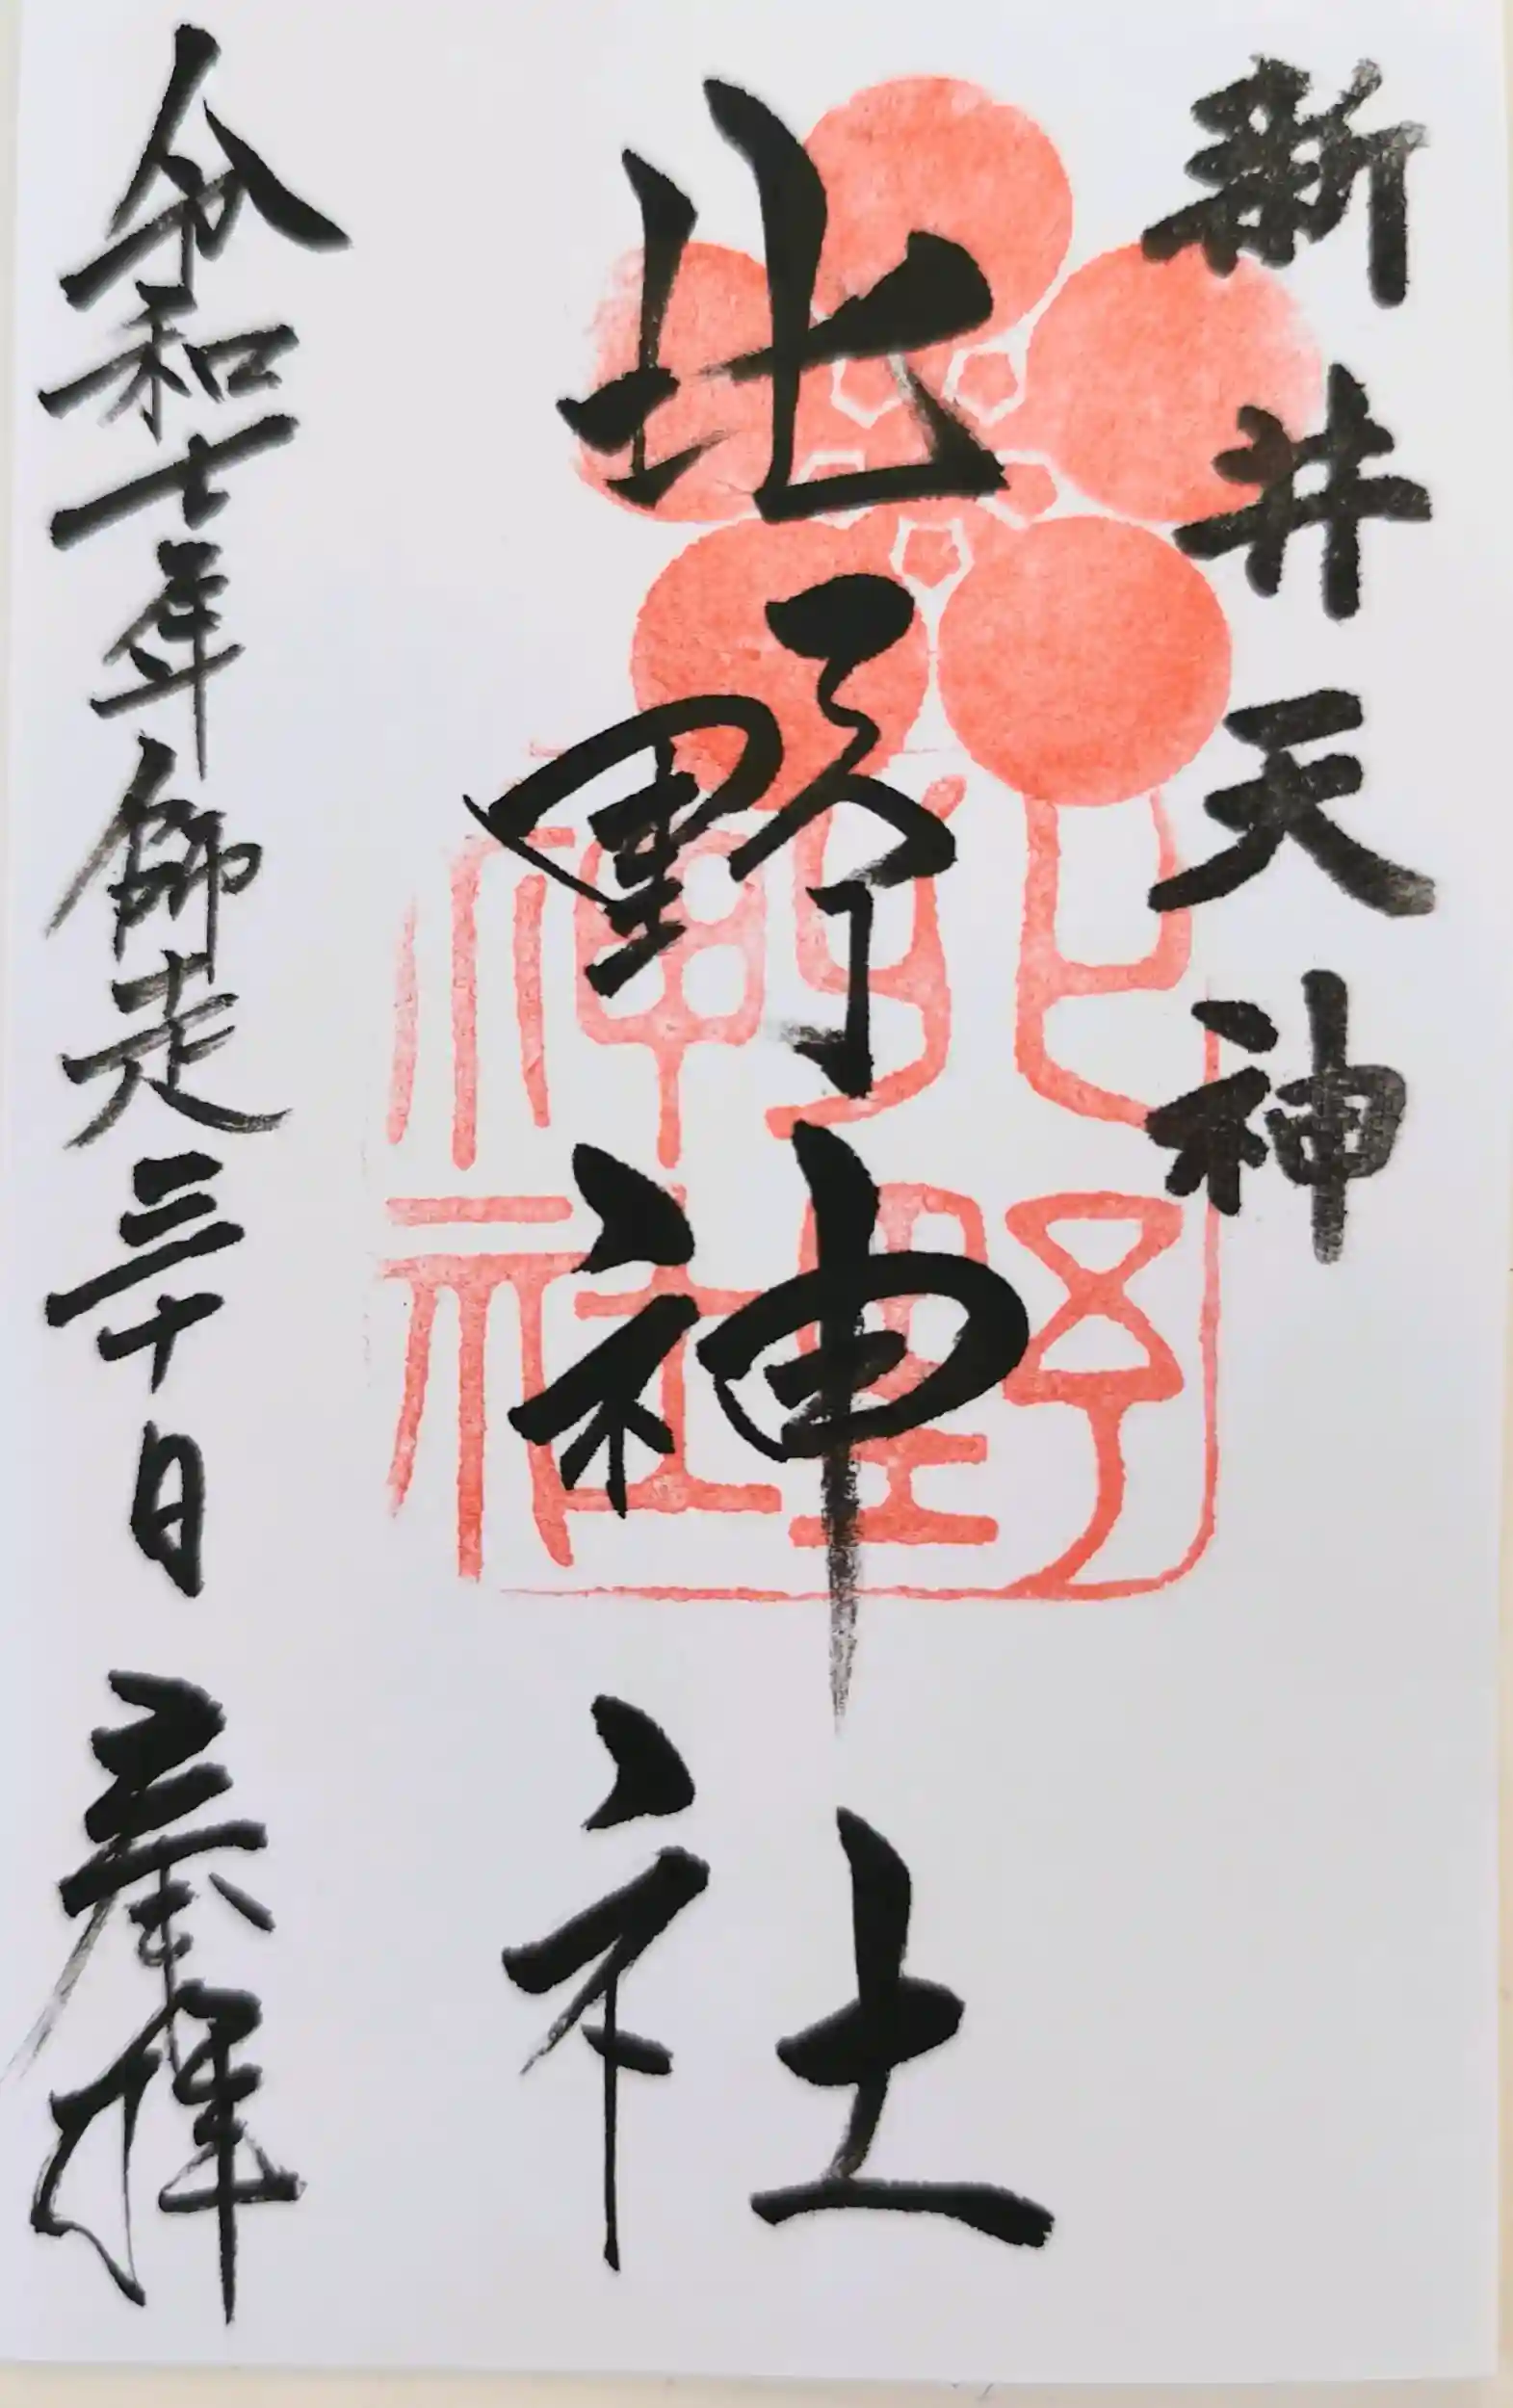 新井天神
北野神社
令和七年師走三十日 奉拝
北野神社